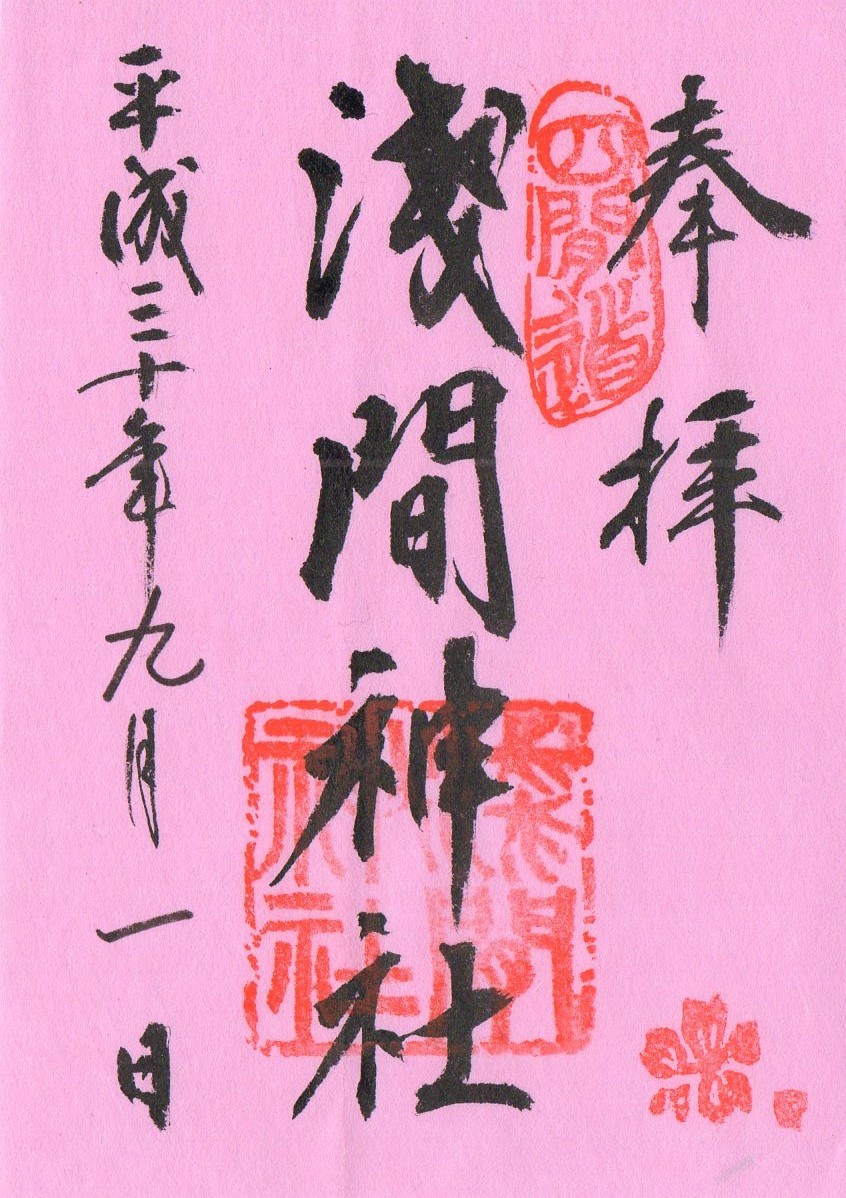 奉拝
四間道
浅間神社
浅間神社
平成三十年九月一日